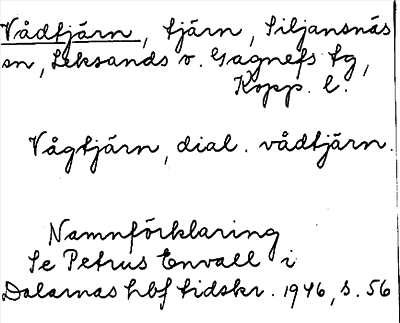 Vådtjärn, tjärn, Siljansnäs
sn, Leksands o. Gagnefs tg,
Kopp. l.
Vågtjärn, dial. vådtjärn.
Namnförklaring
Se Petrus Envall i
Dalarnas hbf tidskr. 1946, s. 56